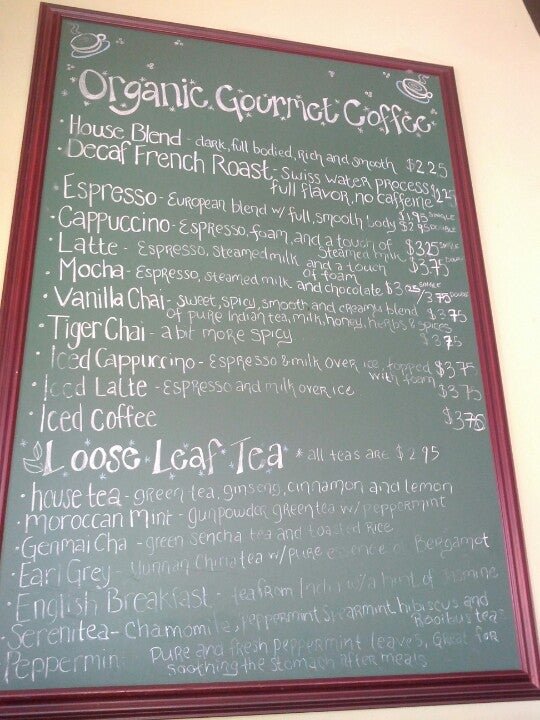 Organic Gourmet Coffee
• House Blend - dark, full bodied, Rich and smooth $2.25
• Decaf French Roast - Swiss water process
full flavor, no caffeine
Espresso - European blend w/ full, smooth body $1.95 single
$2.95 double
• Cappuccino - Espresso, foam, and a touch of
steamed milk $3.25 single
• Latte - Espresso, steamed milk and a touch
of foam $3.75
• Mocha - Espresso, steamed milk and chocolate $3.25 single
/3.75 double
• Vanilla Chai - sweet, spicy, smooth and creamy blend $3.75
of pure Indian tea, milk, honey, herbs & spices
• Tiger Chai - a bit more spicy $3.75
• Iced Cappuccino - Espresso & milk over ice, topped $3.75
with foam
• Iced Latte - Espresso and milk over ice $3.75
• Iced Coffee $3.75
Loose Leaf Tea * all teas are $2.95
• house tea - green tea, ginseng, cinnamon and lemon
• Moroccan Mint - gunpowder green tea w/ peppermint
• Genmai Cha - green sencha tea and toasted rice
• Earl Grey - Yunnan China tea w/ pure essence of Bergamot
• English Breakfast - tea from India w/ a hint of Jasmine
• Serenitea - Chamomile, peppermint spearmint hibiscus and
Rooibus tea
Peppermint pure and fresh peppermint leaves, Great for
soothing the stomach after meals